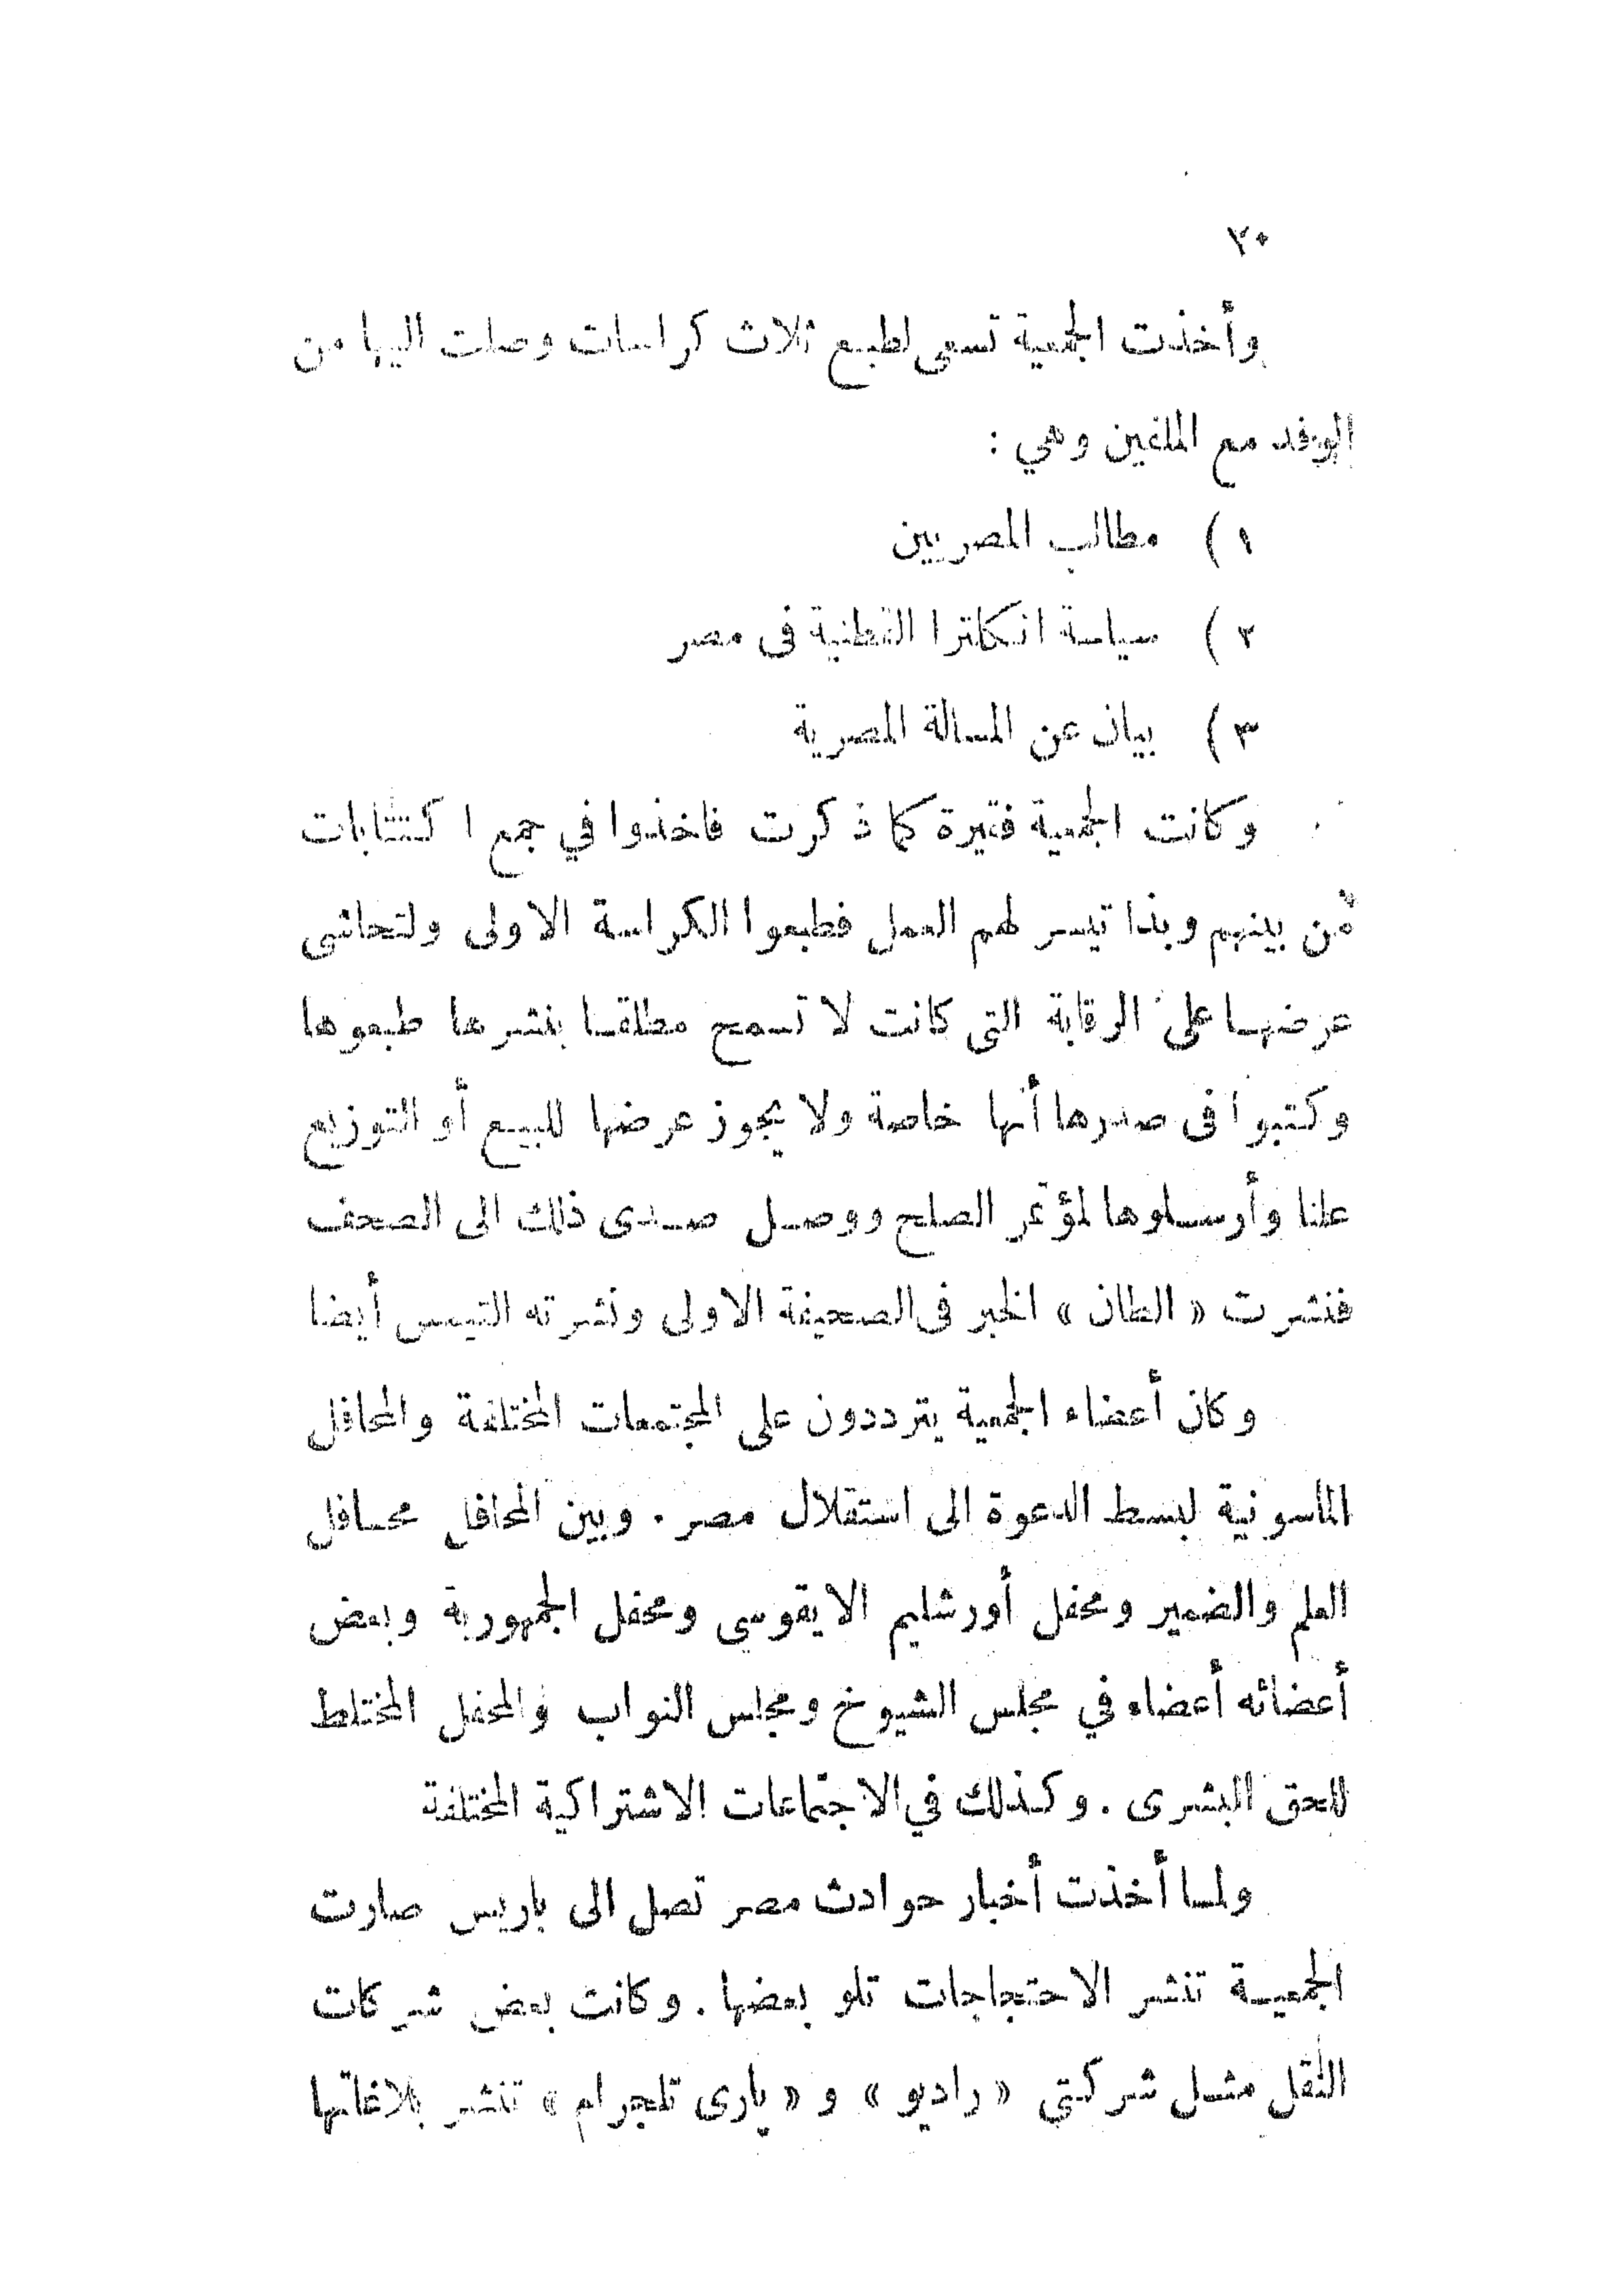 ٢٠
وأخذت الجمعية تسعى لطبع ثلاث كراسات وصلت اليها من
الوفد مع الملفين وهي :
١) مطالب المصريين
٢) سياسة انكلترا القطنية فى مصر
٣) بيان عن المسالة المصرية
وكانت الجمعية فقيرة كما ذكرت فاخذوا في جمع اكتتابات
من بينهم وبذا تيسر لهم العمل فطبعوا الكراسة الاولى ولتحاشى
عرضها على الرقابة التى كانت لا تسمح مطلقا بنشرها طبعوها
وكتبوا فى صدرها أنها خاصة ولا يجوز عرضها للبيع أو التوزيع
علنا وأرسلوها لمؤتمر الصلح ووصل صدى ذلك الى الصحف
فنشرت « الطان » الخبر فى الصحيفة الاولى ونشرته التيمس أيضا
وكان أعضاء الجمعية يترددون على المجتمعات المختلفة والمحافل
الماسونية لبسط الدعوة الى استقلال مصر . وبين المحافل محافل
العلم والضمير ومحفل أورشليم الايقوسى ومحفل الجمهورية وبعض
أعضائه أعضاء في مجلس الشيوخ ومجلس النواب والمحفل المختلط
للحق البشرى . وكذلك في الاجتماعات الاشتراكية المختلفة
ولما أخذت أخبار حوادث مصر تصل الى باريس صارت
الجمعية تنشر الاحتجاجات تلو بعضها . وكانت بعض شركات
النقل مثل شركتي « راديو » و « بارى تلجرام » تنشر بلاغاتها